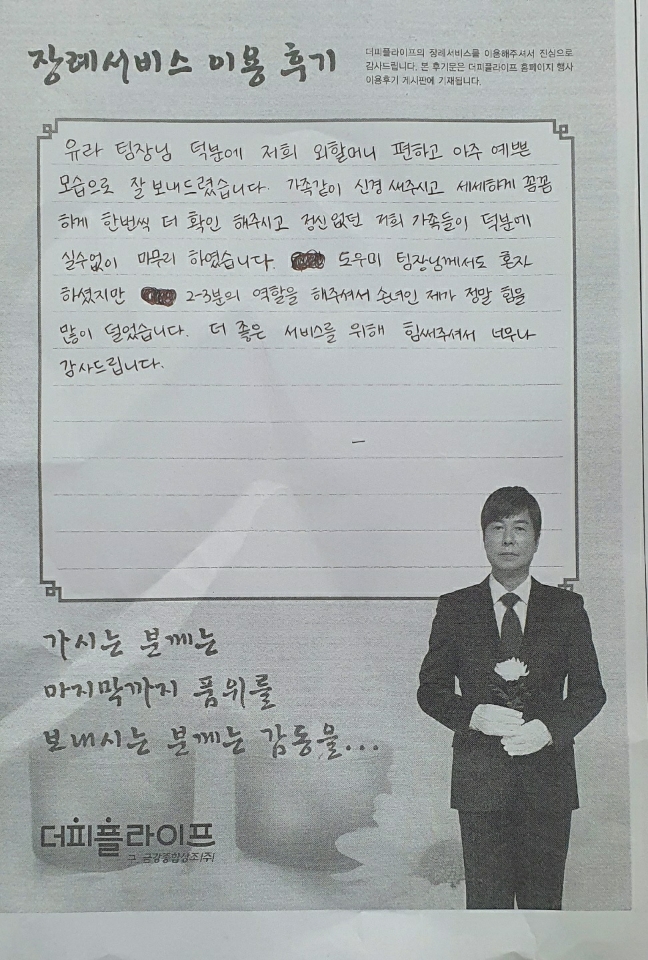 장례서비스 이용 후기
더피플라이프의 장례서비스를 이용해주셔서 진심으로
감사드립니다. 본 후기문은 더피플라이프 홈페이지 행사
이용후기 게시판에 기재됩니다.
유라 팀장님 덕분에 저희 외할머니 편하고 아주 예쁜
모습으로 잘 보내드렸습니다. 가족같이 신경 써주시고 세세하게 꼼꼼
하게 한번씩 더 확인 해주시고 정신없던 저희 가족들이 덕분에
실수없이 마무리 하였습니다. 도우미 팀장님께서도 혼자
하셨지만 2-3분의 역할을 해주셔서 손녀인 제가 정말 힘을
많이 덜었습니다. 더 좋은 서비스를 위해 힘써주셔서 너무나
감사드립니다.
가시는 분께는
마지막까지 품위를
보내시는 분께는 감동을...
더피플라이프
구. 금강종합상조(주)